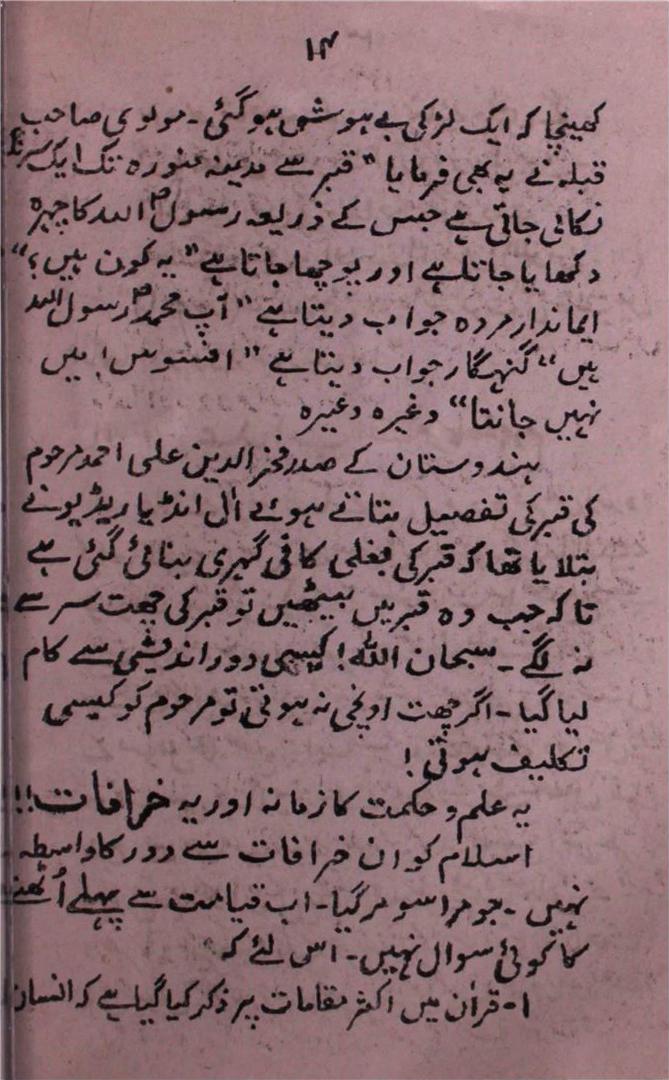 ۱۴
کھینچا کہ ایک لڑکی بے ہوش ہو گئی۔ مولوی صاحب
قبلہ نے یہ بھی فرمایا "قبر سے مدینہ منورہ تک ایک سرنگ
نکالی جاتی ہے جس کے ذریعہ رسولؐ اللہ کا چہرہ
دکھایا جاتا ہے اور پوچھا جاتا ہے "یہ کون ہیں؟"
ایماندار مردہ جواب دیتا ہے "آپ محمدؐ رسول اللہ
ہیں" گنہگار جواب دیتا ہے "افسوس! میں
نہیں جانتا" وغیرہ وغیرہ
ہندوستان کے صدر فخر الدین علی احمد مرحوم
کی قبر کی تفصیل بتاتے ہوئے آل انڈیا ریڈیو نے
بتلایا تھا کہ قبر کی بغلی کافی گہری بنائی گئی ہے
تاکہ جب وہ قبر میں بیٹھیں تو قبر کی چھت سر سے
نہ لگے۔ سبحان اللہ! کیسی دور اندیشی سے کام
لیا گیا۔ اگر چھت اونچی نہ ہوتی تو مرحوم کو کیسی
تکلیف ہوتی!
یہ علم و حکمت کا زمانہ اور یہ خرافات!!!
اسلام کو ان خرافات سے دور کا واسطہ
نہیں۔ جو مرا سو مر گیا۔ اب قیامت سے پہلے اُٹھنے
کا کوئی سوال نہیں۔ اس لئے کہ
۱۔ قرآن میں اکثر مقامات پر ذکر کیا گیا ہے کہ انسان